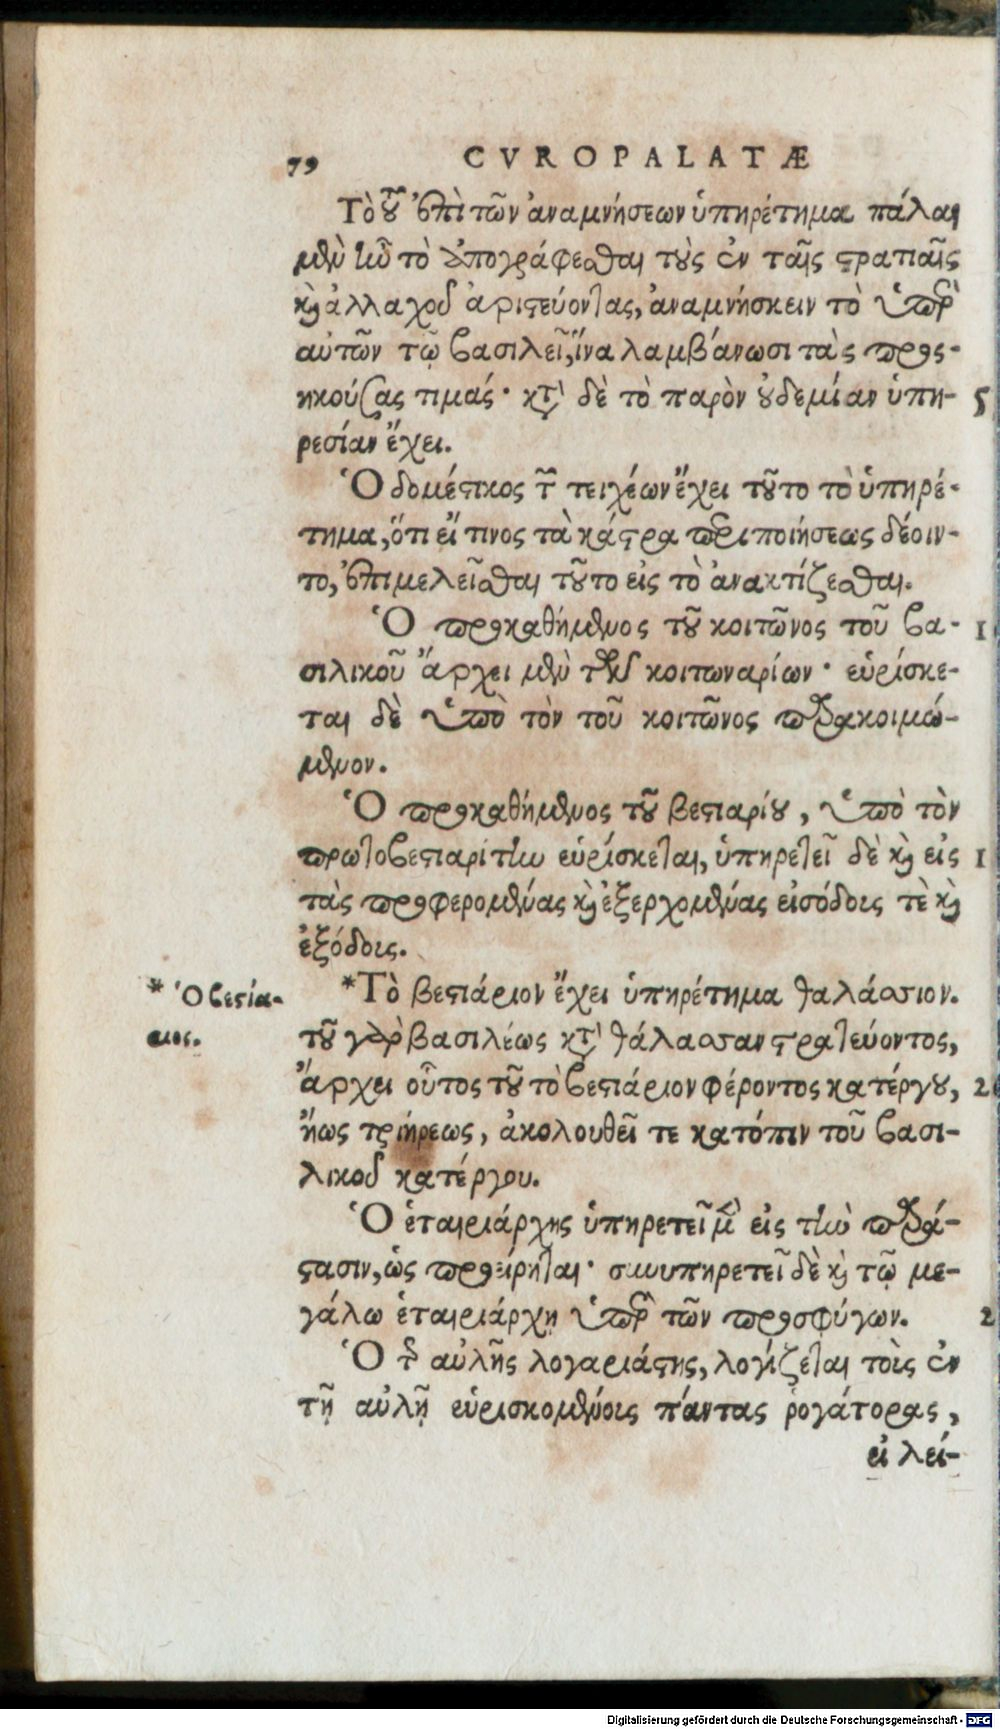 79 CVROPALATÆ
Τὸ τοῦ ἐπὶ τῶν ἀναμνήσεων ὑπηρέτημα πάλαι
μὲν ἦν τὸ ἀπογράφεσθαι τοὺς ἐν ταῖς στρατιαῖς
καὶ ἀλλαχοῦ ἀριστεύοντας, ἀναμνήσκειν τὸ ὑπὲρ
αὐτῶν τῷ βασιλεῖ, ἵνα λαμβάνωσι τὰς προς-
ηκούσας τιμάς· κατὰ δὲ τὸ παρὸν οὐδεμίαν ὑπη- 5
ρεσίαν ἔχει.
Ὁ δομέστικος τῶν τειχέων ἔχει τοῦτο τὸ ὑπηρέ-
τημα, ὅτι εἴ τινος τὰ κάστρα περιποιήσεως δέοιν-
το, ἐπιμελεῖσθαι τοῦτο εἰς τὸ ἀνακτίζεσθαι.
Ὁ προκαθήμενος τοῦ κοιτῶνος τοῦ βα- 1
σιλικοῦ ἄρχει μὲν τῶν κοιτωναρίων· εὑρίσκε-
ται δὲ ὑπὸ τὸν τοῦ κοιτῶνος παρακοιμώ-
μενον.
Ὁ προκαθήμενος τοῦ βεστιαρίου, ὑπὸ τὸν
πρωτοβεστιαρίτην εὑρίσκεται, ὑπηρετεῖ δὲ καὶ εἰς 1
τὰς προφερομένας καὶ ἐξερχομένας εἰσόδοις τὲ καὶ
ἐξόδοις.
* Ὁ βεστιά-
ριος.
*Τὸ βεστιάριον ἔχει ὑπηρέτημα θαλάσσιον.
τοῦ γὰρ βασιλέως κατὰ θάλασσαν στρατεύοντος,
ἄρχει οὗτος τοῦ τὸ βεστιάριον φέροντος κατέργου, 2
ἤως τριήρεως, ἀκολουθεῖ τε κατόπιν τοῦ βασι-
λικοῦ κατέργου.
Ὁ ἑταιριάρχης ὑπηρετεῖ μὲν εἰς τὴν παρά-
στασιν, ὡς προείρηται· συνυπηρετεῖ δὲ καὶ τῷ με-
γάλω ἑταιριάρχῃ ὑπὲρ τῶν προσφύγων. 2
Ὁ τῆς αὐλῆς λογαριάστης, λογίζεται τοῖς ἐν
τῇ αὐλῇ εὑρισκομένοις πάντας ῥογάτορας,
εἰ λεί-
Digitalisierung gefördert durch die Deutsche Forschungsgemeinschaft - DFG